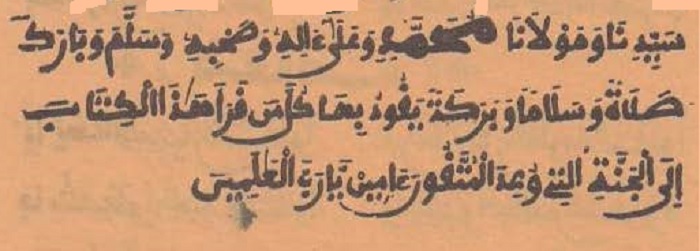 سَيِّدِنَا وَمَوْلَانَا مُحَمَّدٍ وَعَلَى ءَالِهِ وَصَحْبِهِ وَسَلَّمَ وَبَارَكَ
صَلَاةً وَسَلَامًا وَبَرَكَةً يَقُودُ بِهَا كُلَّ مَن قَرَأَ هَٰذَا الْكِتَابَ
إِلَى الْجَنَّةِ الَّتِي وُعِدَ الْمُتَّقُونَ ءَامِينَ يَا رَبَّ الْعَٰلَمِينَ